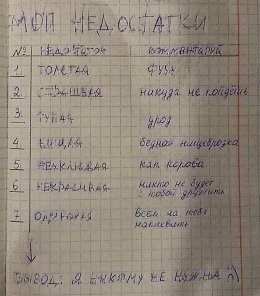 МОИ НЕДОСТАТКИ
№ НЕДОСТАТОК КОММЕНТАРИЙ
1 ТОЛСТАЯ ФУУ
2 СТРАШНАЯ никуда не пойдёшь
3 ТУПАЯ урод
4 НИЩАЯ бедная нищебродка
5 НЕУКЛЮЖАЯ как корова
6 НЕКРАСИВАЯ никто не будет с тобой дружить
7 ОДИНОКАЯ всем на тебя наплевать
ВЫВОД: Я НИКОМУ НЕ НУЖНА :)